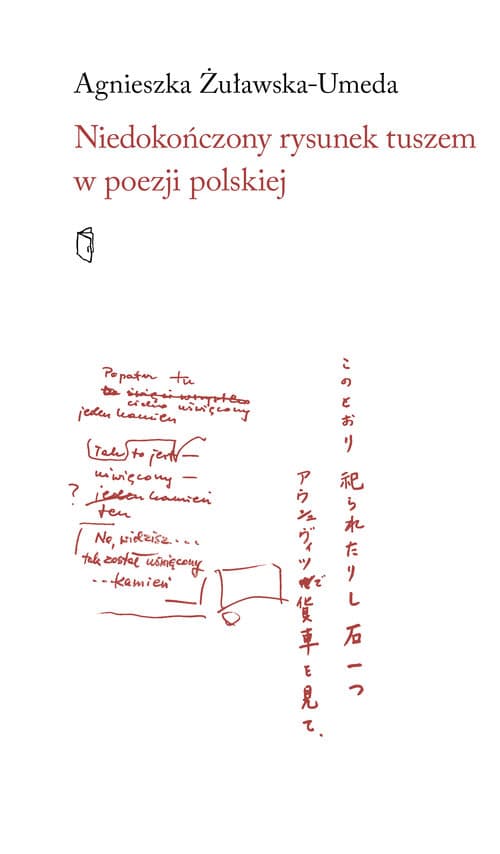 Agnieszka Żuławska-Umeda
Niedokończony rysunek tuszem
w poezji polskiej
Popatrz tu
cicho uświęcony
jeden kamień
(Tak) to jest —
uświęcony —
? jeden kamień
ten
No, widzisz...
tak został uświęcony
...kamień
このとおり 祀られたりし 石一つ
アウシュヴィッツで貨車を見て.